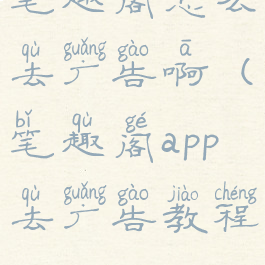 笔趣阁怎么
qù guǎng gào ā
去广告啊（
bǐ qù gé
笔趣阁app
qù guǎng gào jiào chéng
去广告教程